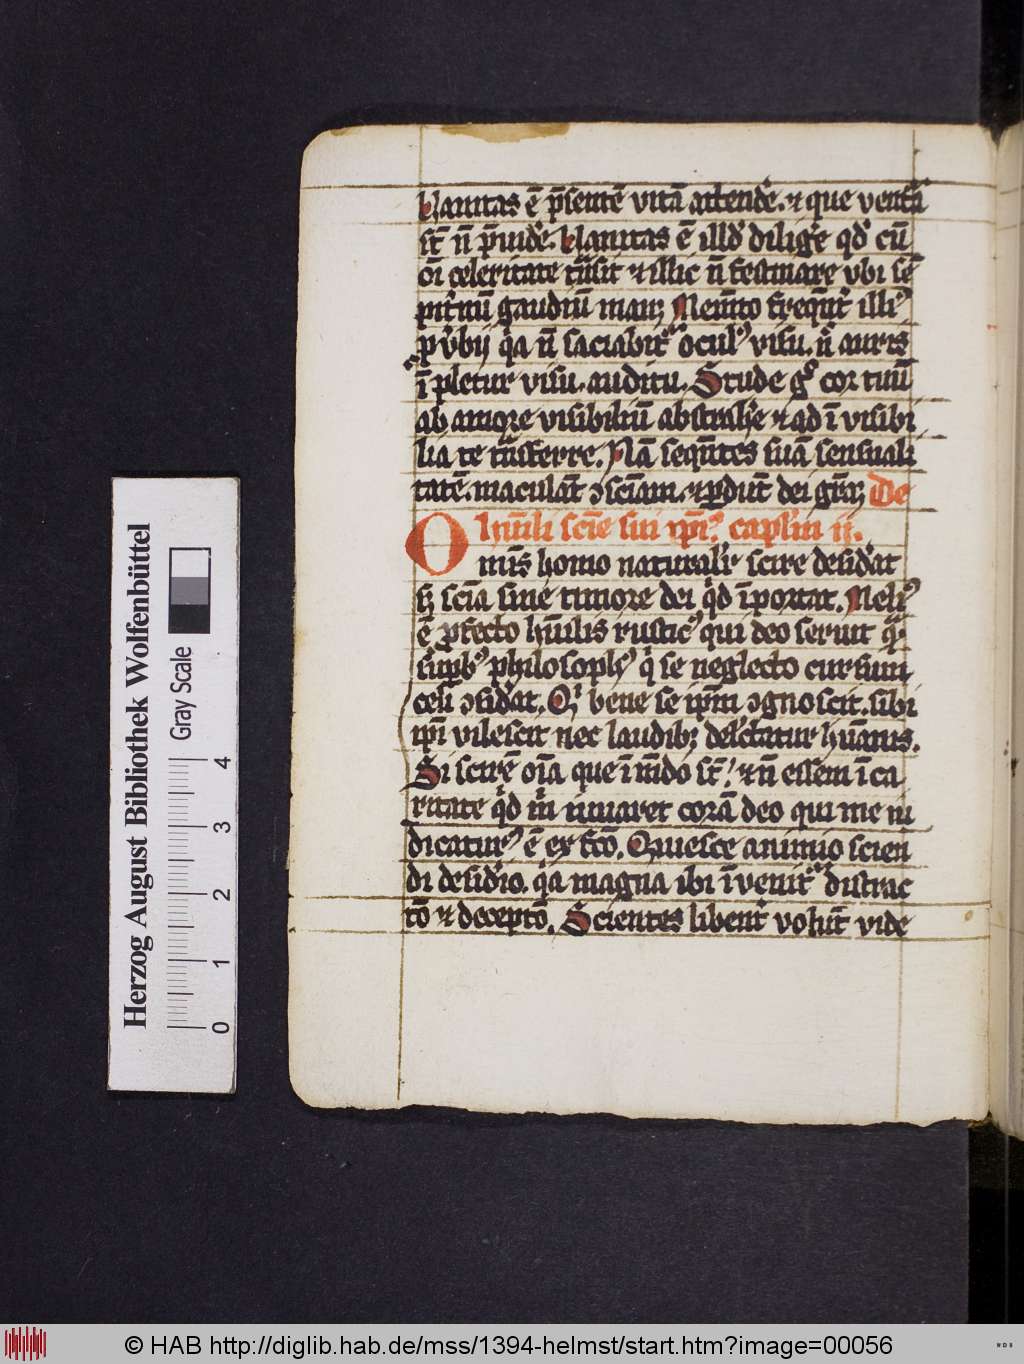 Uanitas ē p̄sentē vitā attende᷒. ⁊ que vent᷑a
st̄ nō p̄uide᷒. Uanitas ē illd᷒ dilige᷒ qd᷒ cū
oī celeritate tn̄sit ⁊ illic n̄ festinare vbi sē
pit᷒nū gaudiū manꝫ Mem̄to freq̄nt᷒ illiꝰ
p᷒v᷒bij qͥa n̄ saciabit᷑ oculꝰ visu. nͨ auris
ī pletur visu. auditu. Stude gͦ cor tuū
ab amore visibiliū abstrah᷒e ⁊ ad ī visibi
lia te tn̄sferre. Nā seq̄ntes suā sensuali
tatē. maculāt ꝯsciam. ⁊ ꝑdūt dei gr̄aꝫ De
hūili scīe sui ip̄iꝰ caplm ij.
Omīs homo naturalit᷒ scire desid᷒at
sꝫ scīa sine timore dei qͥd īportat. Meliꝰ
ē ꝓfecto hūilis rusticꝰ qui deo seruit qͣ
suꝑbꝰ philosophꝰ qͥ se neglecto cursum
celi ꝯsid᷒at. Qͥ bene se ip̄m ꝯgnoscit. sibi
ip̄i vilescit nec laudibꝫ delc̄tatur hūanis.
Si scirē oīa que ī mūdo st̄. ⁊ n̄ essem ī ca
ritate qͥd m̄ iuuaret corā deo qui me iu
dicaturꝰ ē ex fc̄o. Quiesce animo scien
di desid᷒io. qͥa magna ibi ī venit᷑ distrac
tō ⁊ deceptō. Scientes libent᷒ volūt vide
Herzog August Bibliothek Wolfenbüttel
Gray Scale
0 1 2 3 4
© HAB http://diglib.hab.de/mss/1394-helmst/start.htm?image=00056